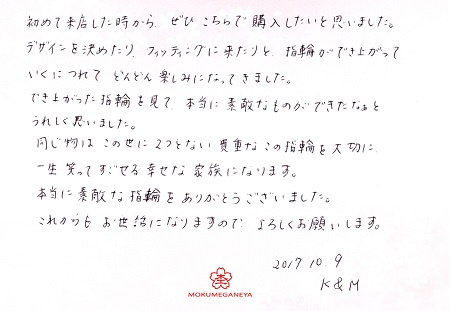 初めて来店した時から、ぜひこちらで購入したいと思いました。
デザインを決めたり、フィッティングに来たりと、指輪ができ上がって
いくにつれて どんどん楽しみになってきました。
でき上がった指輪を見て、本当に素敵なものができたなぁと
うれしく思いました。
同じ物は この世に2つとない貴重なこの指輪を大切に、
一生笑ってすごせる幸せな家族になります。
本当に素敵な指輪をありがとうございました。
これからも お世話になりますので よろしくお願いします。
2017.10.9
K&M
MOKUMEGANEYA